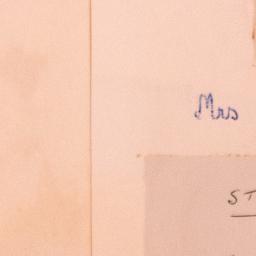 Mrs
ST